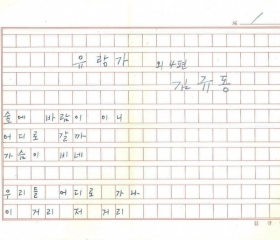 1
유랑가
외 4편
김규동
숲에 바람이 이니
어디로 갈까
가슴이 비네
우리들 어디로 가나
이 거리 저 거리